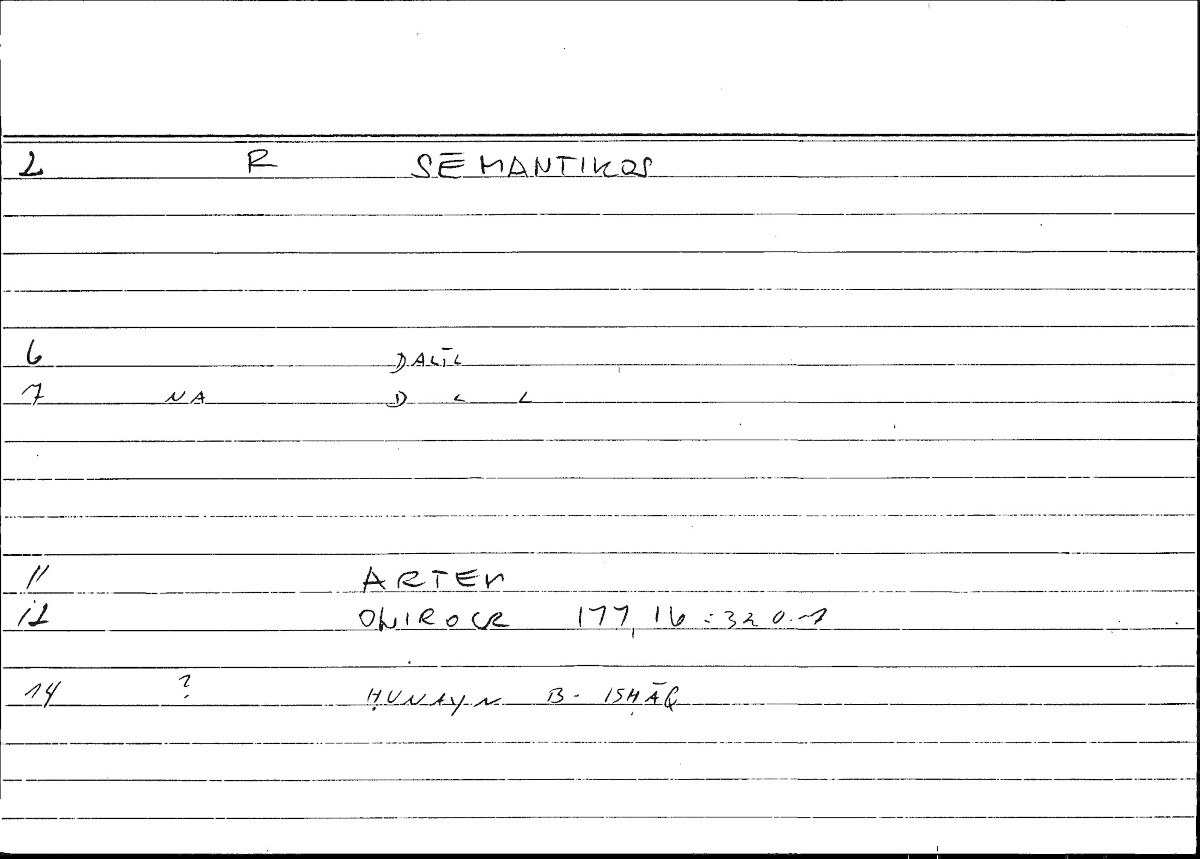 2 R SĒMANTIKOS
6 DALĪL
7 NA D L L
11 ARTEM
12 ONIROCR 177, 16 = 320.1
14 ? ḤUNAYN B. ISḤĀQ